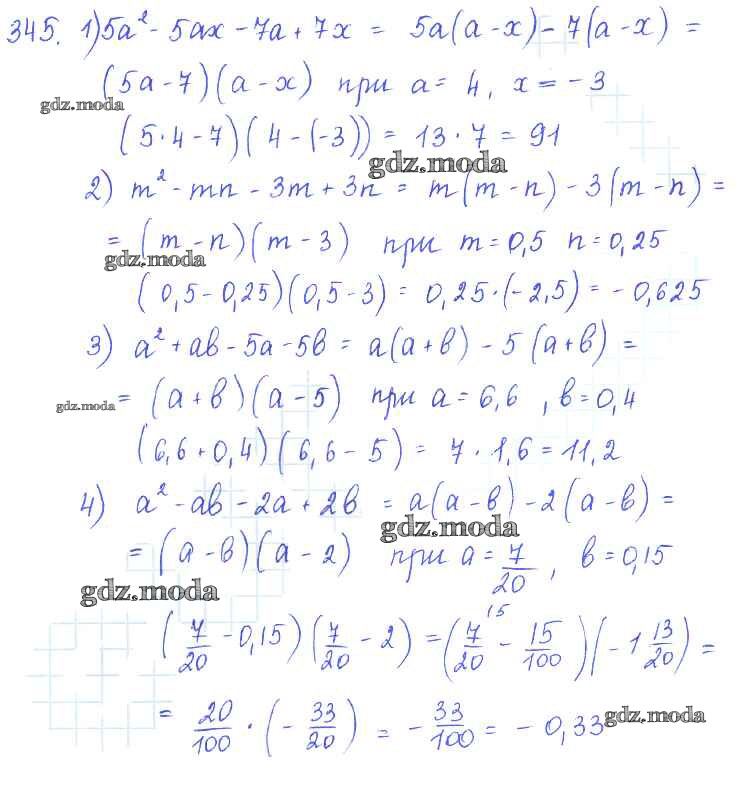 345. 1) 5a² - 5ax - 7a + 7x = 5a(a - x) - 7(a - x) =
(5a - 7)(a - x) при a = 4, x = -3
gdz.moda
(5·4 - 7)(4 - (-3)) = 13 · 7 = 91
gdz.moda
2) m² - mn - 3m + 3n = m(m - n) - 3(m - n) =
= (m - n)(m - 3) при m = 0,5 n = 0,25
gdz.moda
(0,5 - 0,25)(0,5 - 3) = 0,25·(-2,5) = -0,625
3) a² + ab - 5a - 5b = a(a + b) - 5(a + b) =
gdz.moda = (a + b)(a - 5) при a = 6,6 , b = 0,4
(6,6 + 0,4)(6,6 - 5) = 7 · 1,6 = 11,2
4) a² - ab - 2a + 2b = a(a - b) - 2(a - b) =
gdz.moda
= (a - b)(a - 2) при a = 7/20 , b = 0,15
gdz.moda
15
(7/20 - 0,15)(7/20 - 2) = (7/20 - 15/100)(-1 13/20) =
= 20/100 · (- 33/20) = - 33/100 = - 0,33
gdz.moda